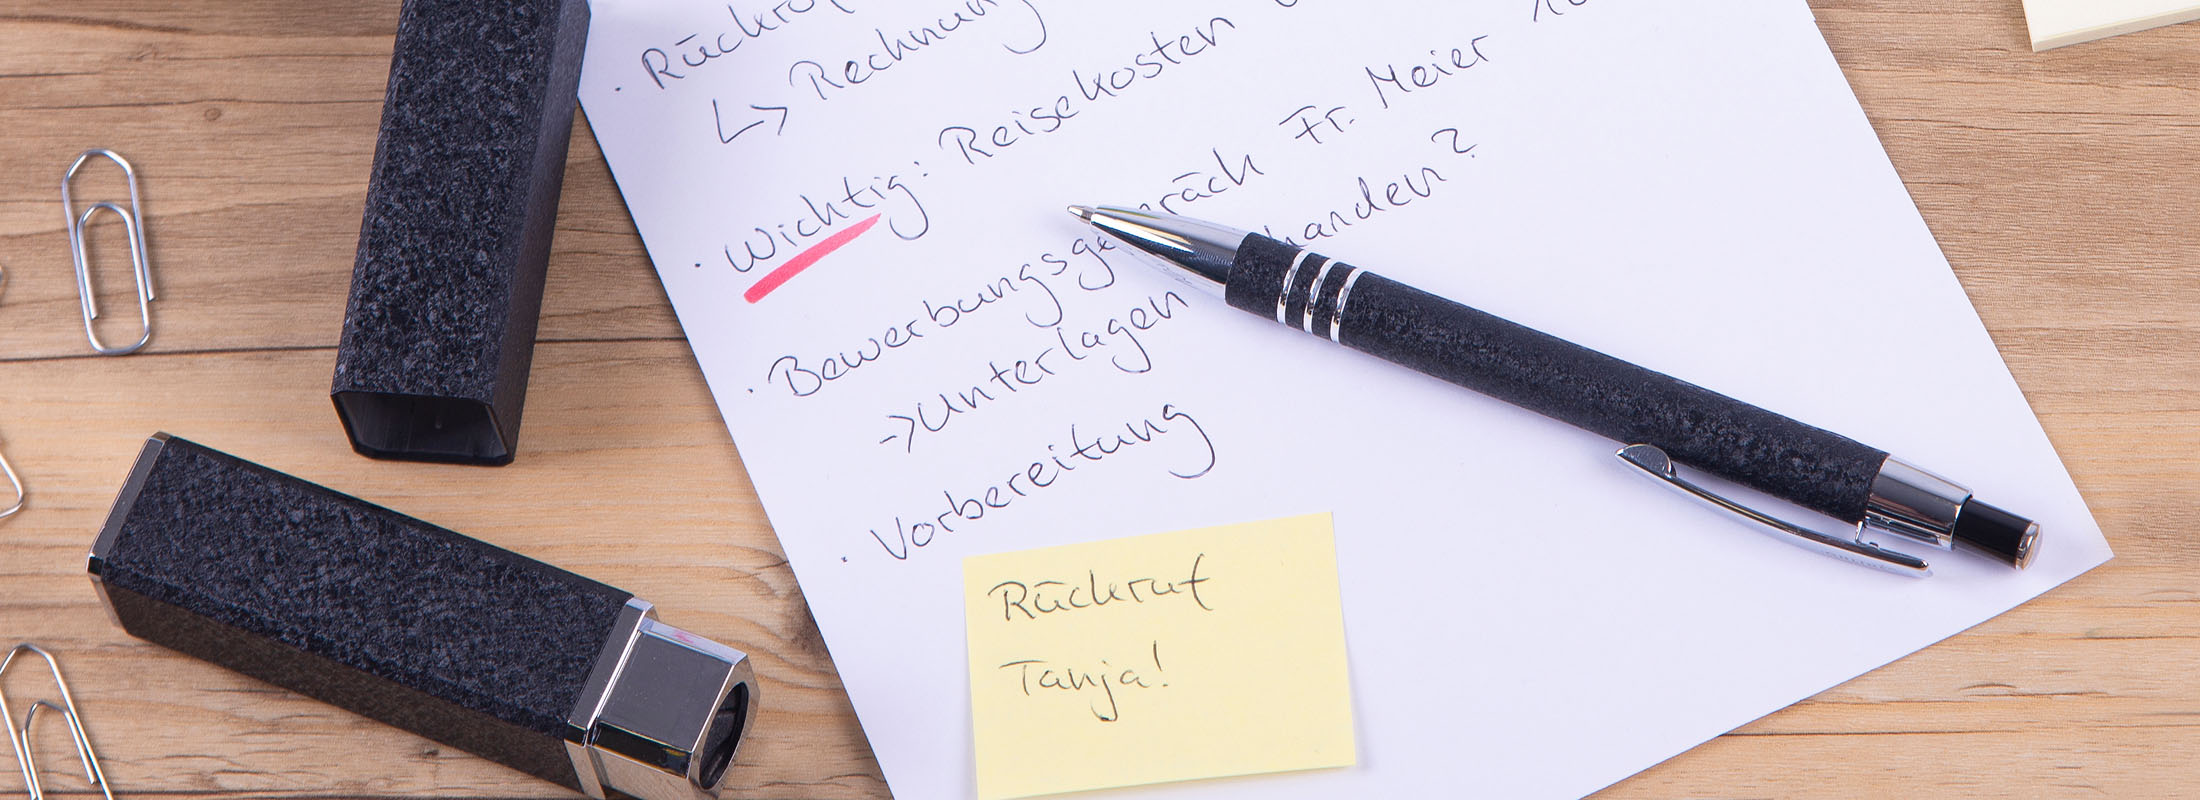 · Rückruf
↳ Rechnung
· Wichtig: Reisekosten
· Bewerbungsgespräch Fr. Meier
-> Unterlagen vorhanden?
· Vorbereitung
Rückruf
Tanja!